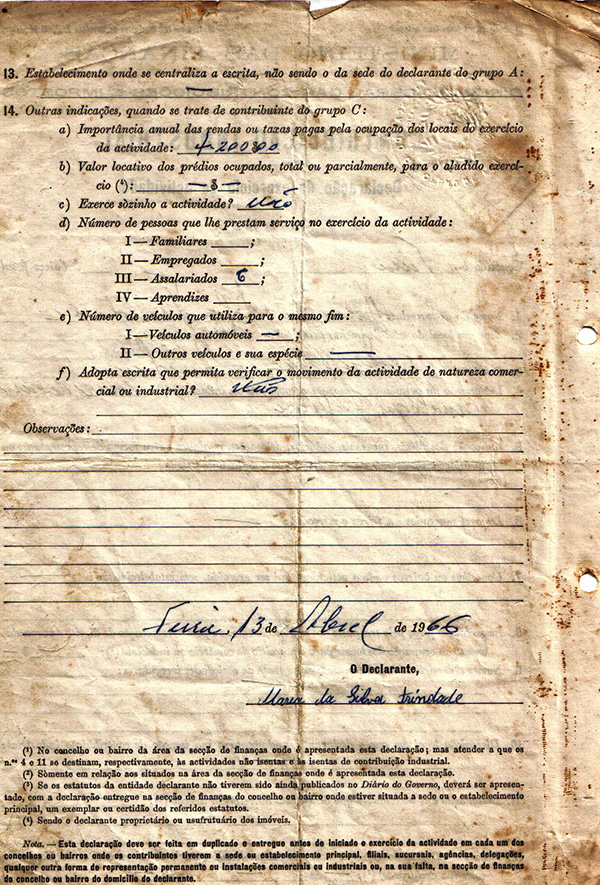 13. Estabelecimento onde se centraliza a escrita, não sendo o da sede do declarante do grupo A:
—
14. Outras indicações, quando se trate de contribuinte do grupo C:
a) Importância anual das rendas ou taxas pagas pela ocupação dos locais do exercício
da actividade:
b) Valor locativo dos prédios ocupados, total ou parcialmente, para o aludido exercí-
cio (⁴):
c) Exerce sòzinho a actividade? Não
d) Número de pessoas que lhe prestam serviço no exercício da actividade:
I — Familiares ______;
II — Empregados ______;
III — Assalariados 6 ;
IV — Aprendizes ______
e) Número de veículos que utiliza para o mesmo fim:
I — Veículos automóveis — ;
II — Outros veículos e sua espécie —
f) Adopta escrita que permita verificar o movimento da actividade de natureza comer-
cial ou industrial? Não
Observações:
13 de Abril de 1966
O Declarante,
Maria da Silva Trindade
(¹) No concelho ou bairro da área da secção de finanças onde é apresentada esta declaração; mas atender a que os
n.ᵒˢ 4 e 11 se destinam, respectivamente, às actividades não isentas e às isentas de contribuição industrial.
(²) Sòmente em relação aos situados na área da secção de finanças onde é apresentada esta declaração.
(³) Se os estatutos da entidade declarante não tiverem sido ainda publicados no Diário do Governo, deverá ser apresen-
tado, com a declaração entregue na secção de finanças do concelho ou bairro onde estiver situada a sede ou o estabelecimento
principal, um exemplar ou certidão dos referidos estatutos.
(⁴) Sendo o declarante proprietário ou usufrutuário dos imóveis.
Nota. — Esta declaração deve ser feita em duplicado e entregue antes de iniciado o exercício da actividade em cada um dos
concelhos ou bairros onde os contribuintes tiverem a sede ou estabelecimento principal, filiais, sucursais, agências, delegações,
qualquer outra forma de representação permanente ou instalações comerciais ou industriais ou, na sua falta, na secção de finanças
do concelho ou bairro do domicílio do declarante.